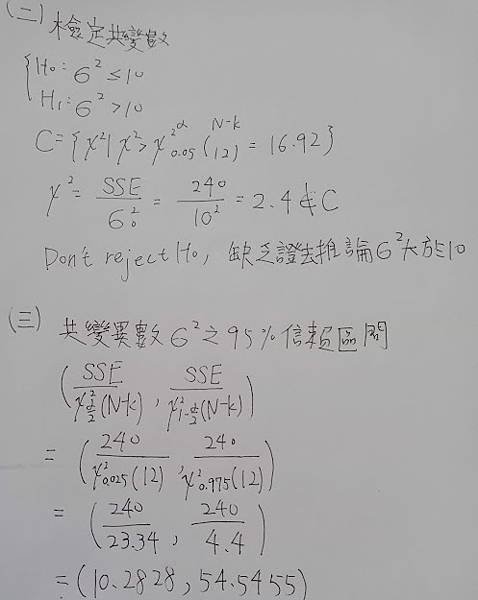 (二) 檢定共變數
{H₀: 6² ≤ 10
H₁: 6² > 10
C = {χ² | χ² > χ²₀.₀₅^α (12)^(N-k) = 16.92}
χ² = SSE/6²₀ = 240/10² = 2.4 ∉ C
Don't reject H₀, 缺乏證去推論 6² 大於 10
(三) 共變異數 6² 之 95% 信賴區間
(SSE/χ²_(α/2)(N-k), SSE/χ²_(1-α/2)(N-k))
= (240/χ²₀.₀₂₅(12), 240/χ²₀.₉₇₅(12))
= (240/23.34, 240/4.4)
= (10.2828, 54.5455)